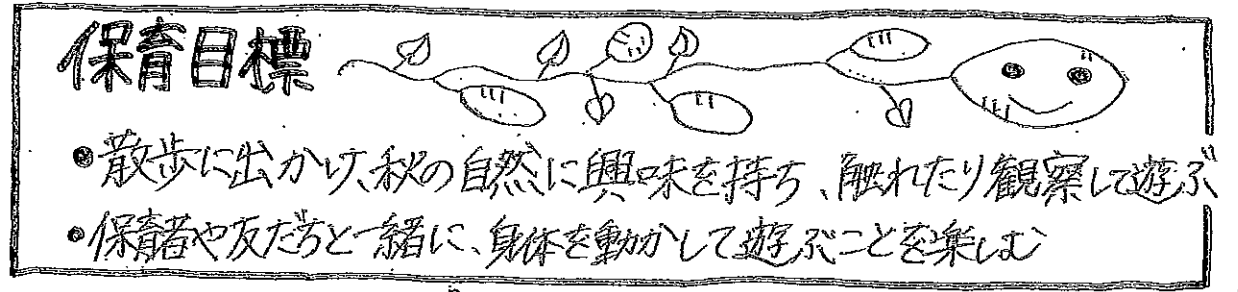 保育目標
●散歩に出かけ、秋の自然に興味を持ち、触れたり観察して遊ぶ
●保育者や友だちと一緒に、身体を動かして遊ぶことを楽しむ